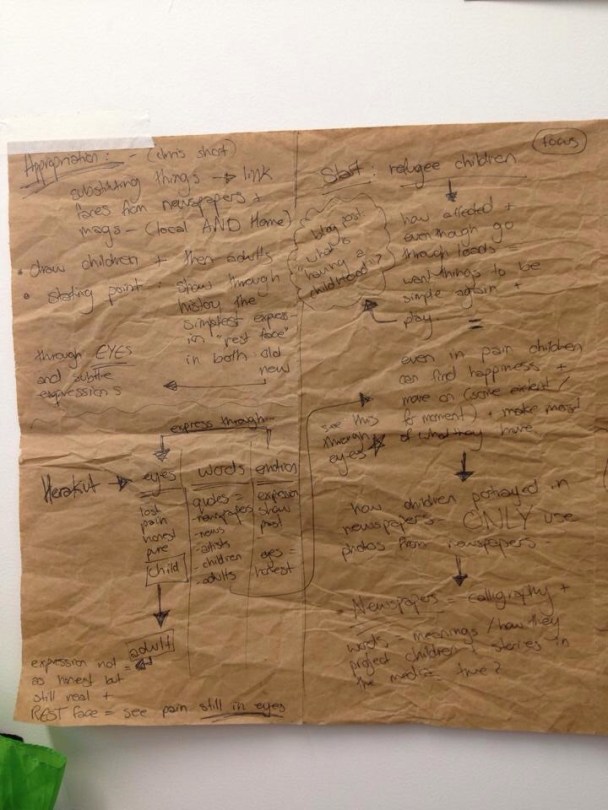 Appropriation: - (chris shot)
substituting things → link
faces from newspapers +
mags - (local AND Home)
• draw children + then adults
• starting point: show through
history the
simplest express
in "rest face"
in both old
new
through EYES
and subtle
expressions
express through
Herakut → eyes
lost
pain
honest
pure
child
adult
words
quotes =
- newspapers
- news
- artists
- children
- adults
emotion
expression
show
past
eyes =
honest
expression not
as honest but
still real +
REST face = see pain still in eyes
focus
Start: refugee children
how affected +
even though go
through loads
want things to be
simple again +
play =
blog post
"what's
having a
childhood"?
even in pain children
can find happiness +
move on (some extent /
for moment) + make most
of what they have
see this
through
eyes
how children portrayed in
newspapers - ONLY use
photos from newspapers -
• Newspapers = calligraphy +
words, meanings / how they
project children's stories in
the media true?